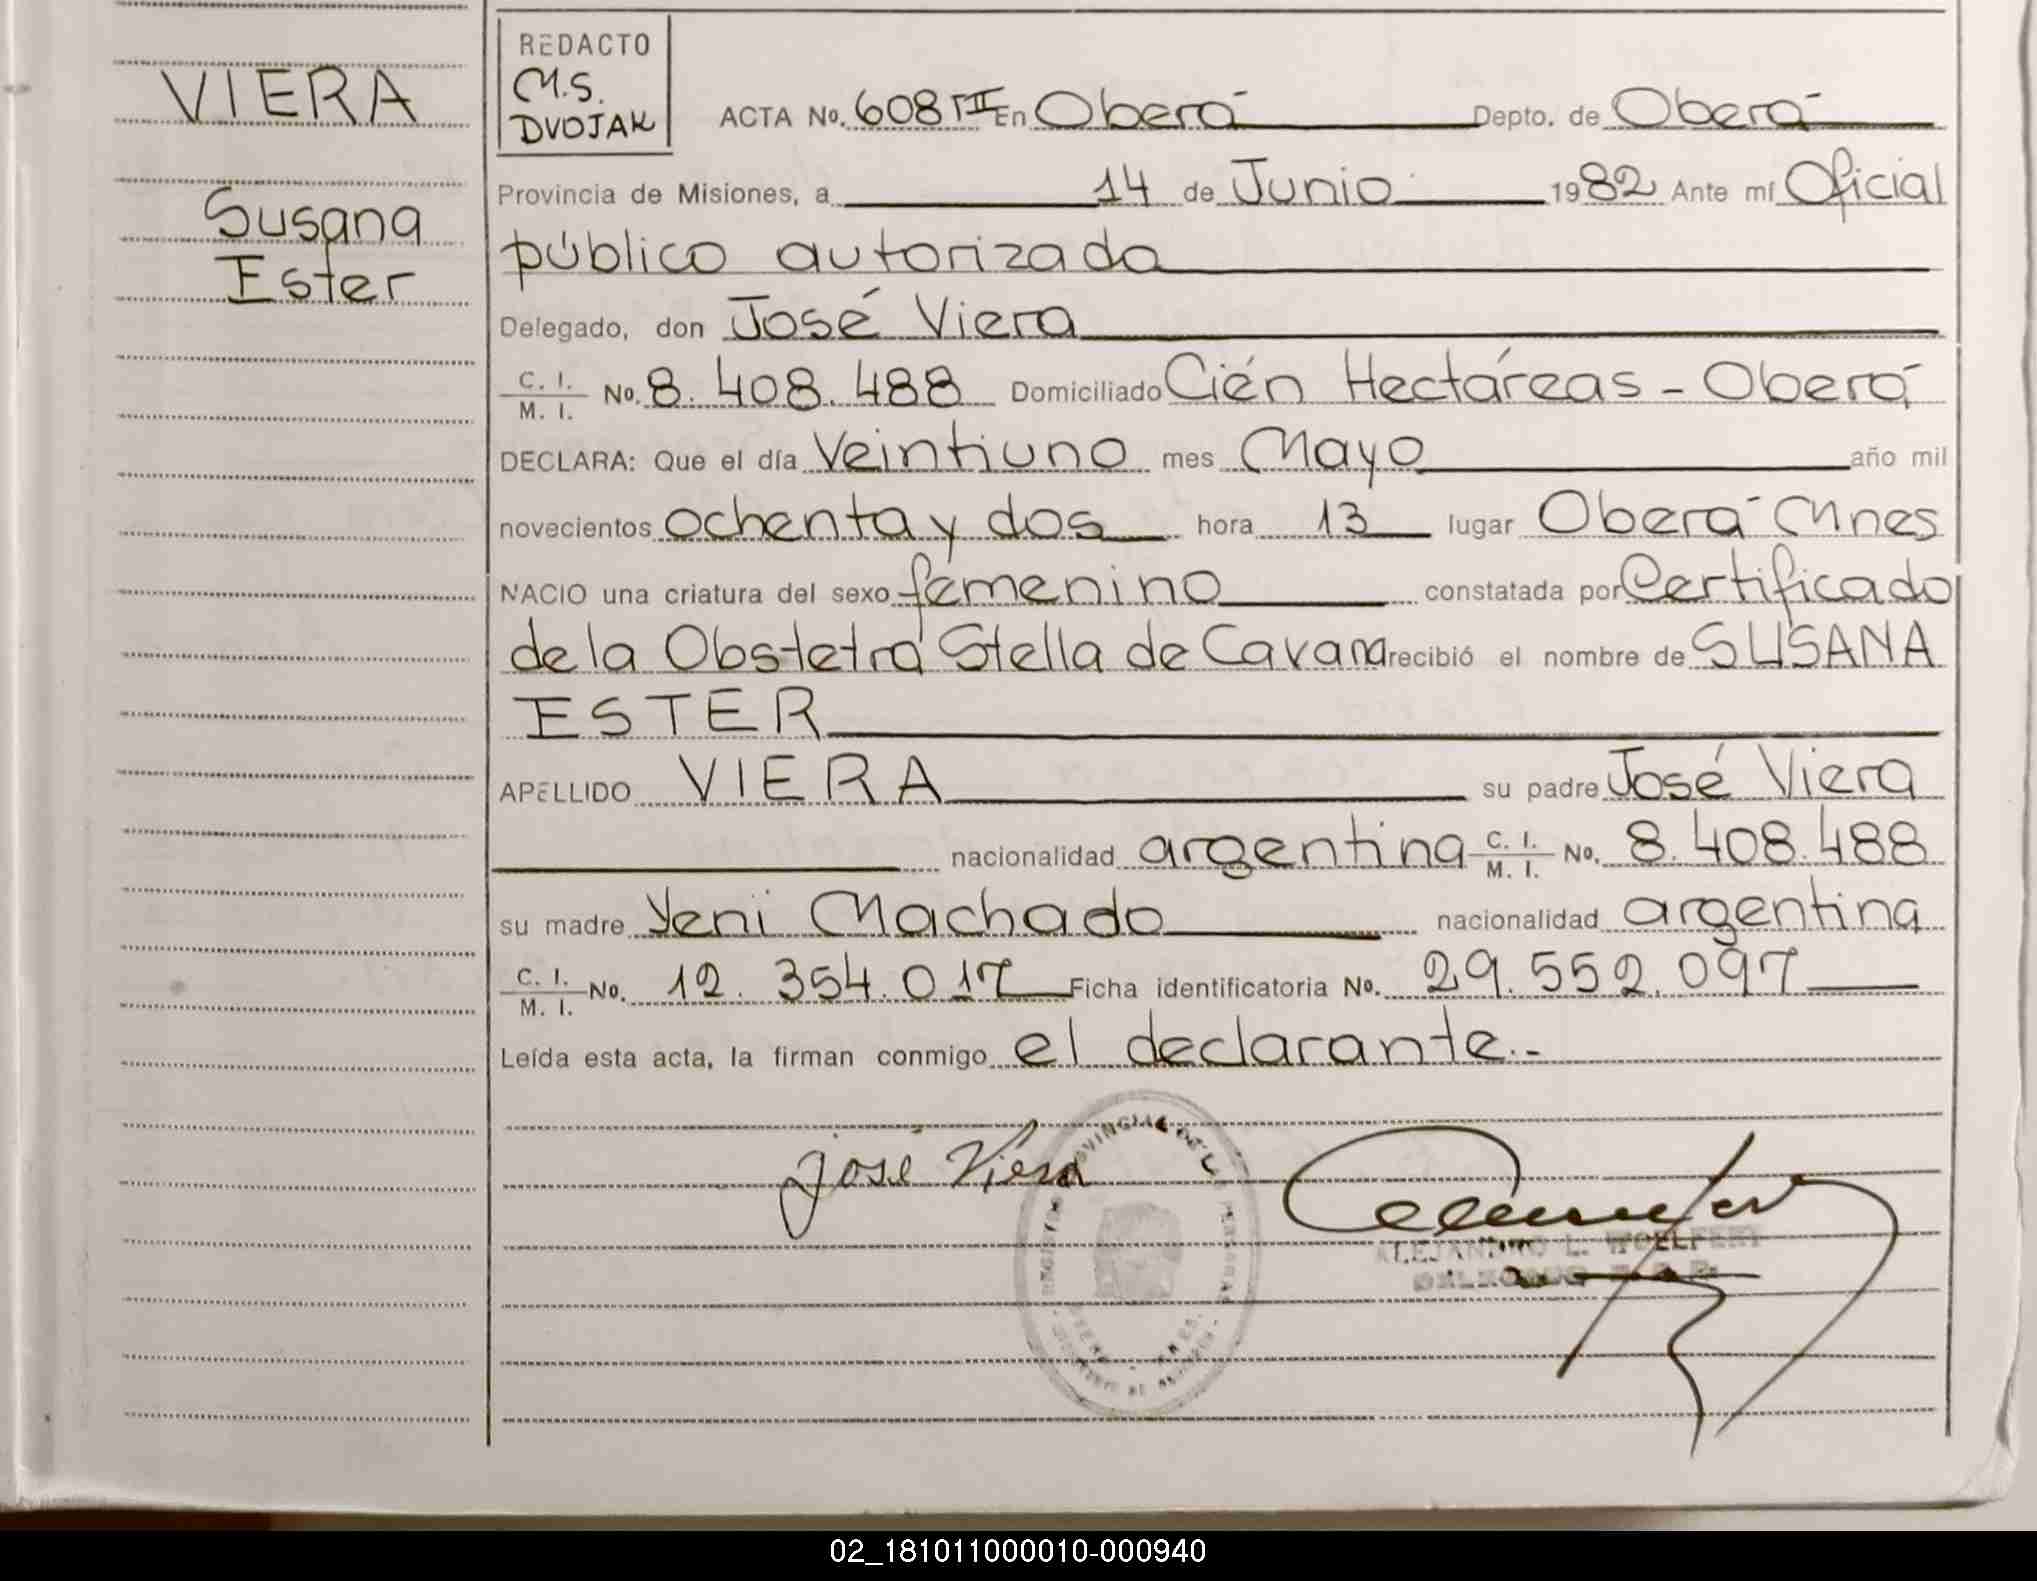 VIERA
Susana
Ester
REDACTO
M.S.
DVOJAK
ACTA No. 608 TII En Oberá Depto. de Oberá
Provincia de Misiones, a 14 de Junio 1982 Ante mí Oficial
público autorizado
Delegado, don José Viera
C. I. / M. I. No. 8.408.488 Domiciliado Cién Hectáreas - Oberá
DECLARA: Que el día Veintiuno mes Mayo año mil
novecientos ochenta y dos hora 13 lugar Oberá Mnes
NACIO una criatura del sexo femenino constatada por Certificado
de la Obstetra Stella de Cavana recibió el nombre de SUSANA
ESTER
APELLIDO VIERA su padre José Viera
nacionalidad argentina C. I. / M. I. No. 8.408.488
su madre Yeni Machado nacionalidad argentina
C. I. / M. I. No. 12.354.017 Ficha identificatoria No. 29.552.097
Leída esta acta, la firman conmigo el declarante.-
José Viera
ALEJANDRO L. WOELFERT
DELEGADO
02_181011000010-000940